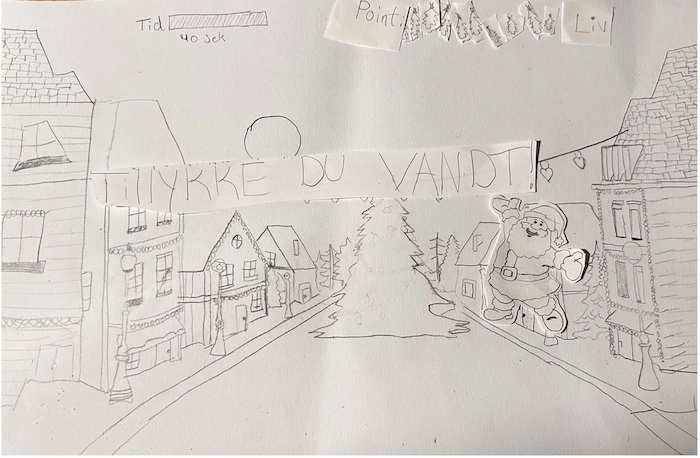 Tid
40 sek
Point:
Liv
TiLLYKKE DU VANDT!